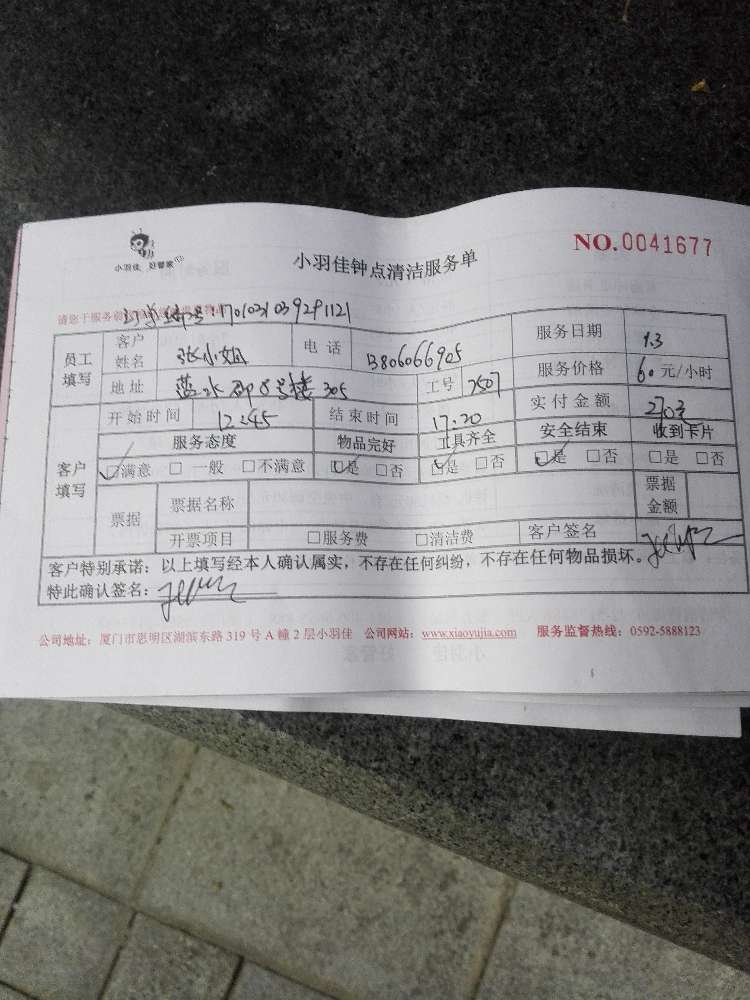 小羽佳 好管家
小羽佳钟点清洁服务单
NO.0041677
请您于服务前
订单编号:1701031039291121
员工填写 客户姓名 张小姐 电话 13806066905 服务日期 1.3
地址 蓝水郡8号楼305 工号 2507 服务价格 60元/小时
客户填写 开始时间 12:45 结束时间 17:20 实付金额 270元
服务态度 物品完好 工具齐全 安全结束 收到卡片
☑满意 □一般 □不满意 ☑是 □否 ☑是 □否 ☑是 □否 □是 □否
票据 票据名称 票据金额
开票项目 □服务费 □清洁费 客户签名
客户特别承诺：以上填写经本人确认属实，不存在任何纠纷，不存在任何物品损坏。
特此确认签名：
公司地址：厦门市思明区湖滨东路 319 号 A 幢 2 层小羽佳 公司网站：www.xiaoyujia.com 服务监督热线：0592-5888123